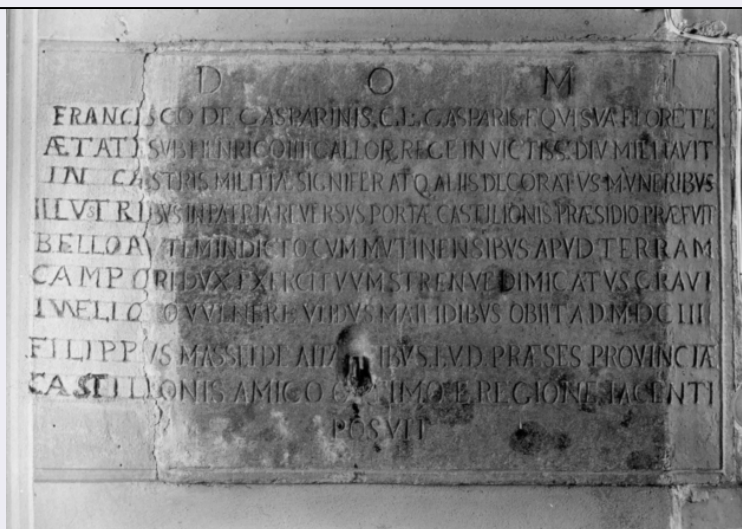 D O M
FRANCISCO DE GASPARINIS. C. L. GASPARIS. F. QVI SVA FLORETE
ÆTATE SVB HENRICO IIII GALLOR. REGE INVICTISS. DIV MILITAVIT
IN CASTRIS MILITIÆ SIGNIFER ATQ ALIIS DECORATVS MVNERIBVS
ILLVSTRIBVS IN PATRIA REVERSVS PORTÆ CASTILIONIS PRÆSIDIO PRÆFVIT
BELLO AVTEM INDICTO CVM MVTINENSIBVS APVD TERRAM
CAMPORI DVX EXERCITVVM STRENVE DIMICATVS GRAVI
VVLNERE MAII IDIBVS OBIIT A D M DC III
FILIPPVS MASSEI DE I. V. D. PRÆSES PROVINCIÆ
CASTILIONIS AMICO E REGIONE IACENTI
POSVIT